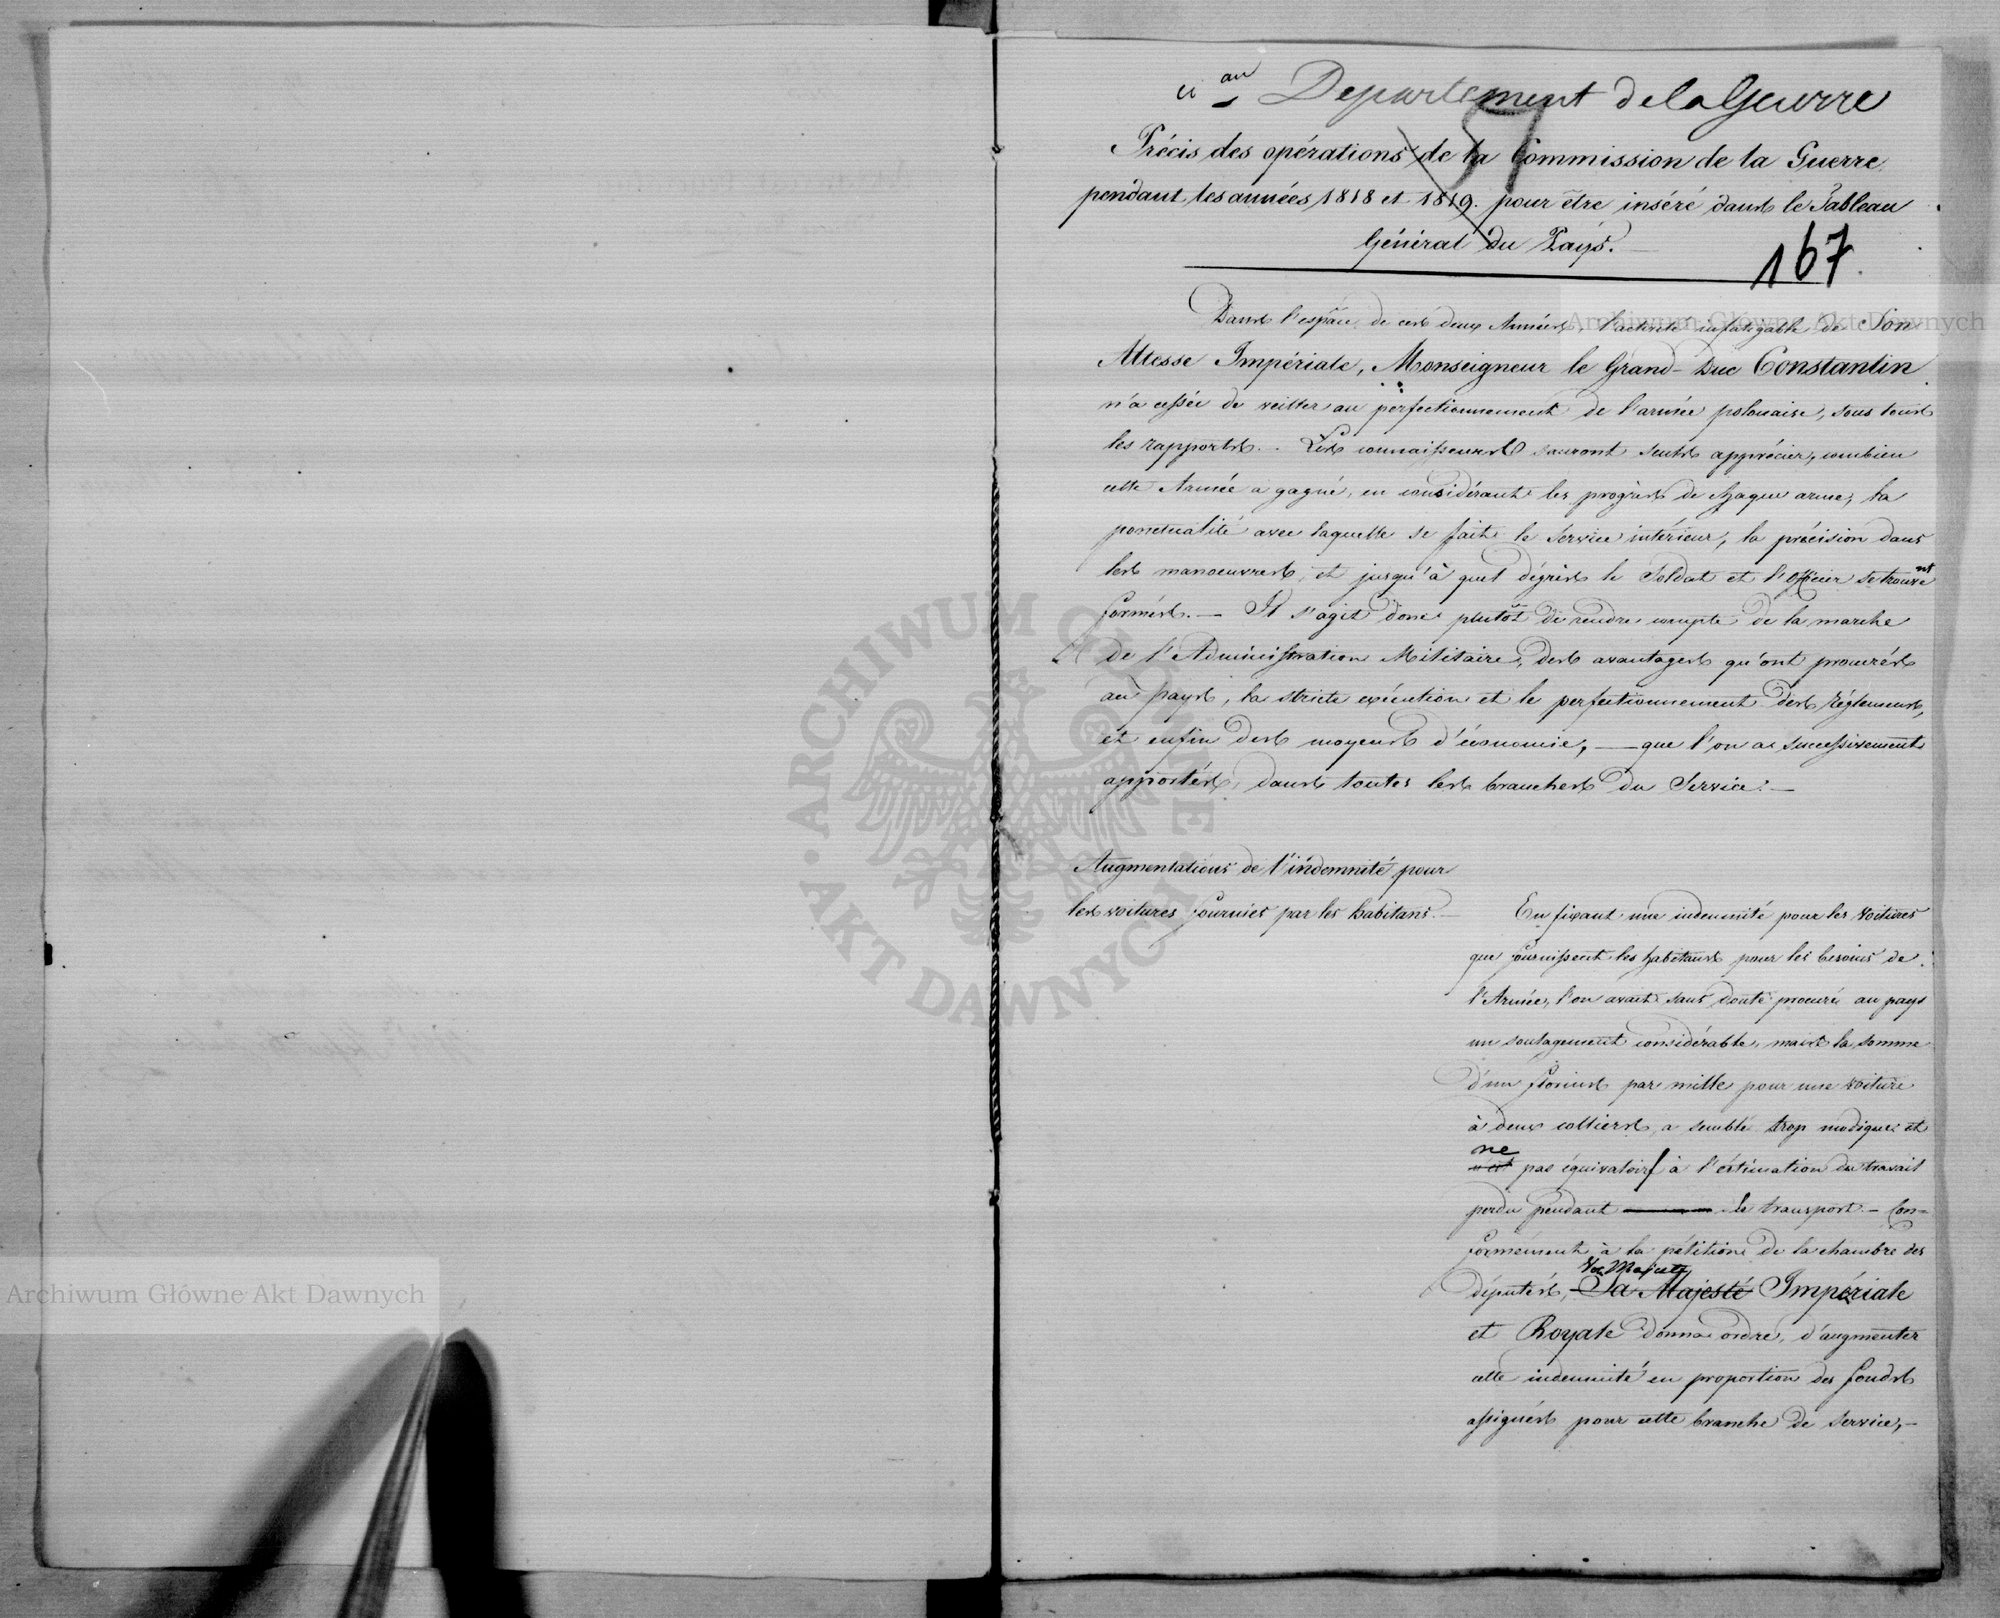 au Departement de la Guerre
57
Précis des opérations de la Commission de la Guerre
pendant les années 1818 et 1819. pour être inséré dans le Tableau
Général du Pays.
167
Dans l'espace de ces deux Années, l'activité infatigable de Son
Altesse Impériale, Monseigneur le Grand-Duc Constantin
n'a cessée de veiller au perfectionnement de l'armée polonaise, sous tous
les rapports. Les connaisseurs sauront seuls apprécier, combien
cette Armée a gagné, en considérant les progrès de chaque arme, la
ponctualité avec laquelle se fait le Service intérieur, la précision dans
les manoeuvres, et jusqu'à quel dégrés le Soldat et l'officier se trouvent
formés. — Il s'agit donc plutôt de rendre compte de la marche
de l'Administration Militaire, des avantages qu'ont procurés
au pays, la stricte exécution et le perfectionnement des réglemens,
et enfin des moyens d'économie, — que l'on a successivement
apportés, dans toutes les branches du Service. —
Augmentations de l'indemnité pour
les voitures fournies par les habitans. —
En fixant une indemnité pour les voitures
que fournissent les habitans pour les besoins de
l'Armée, l'on avait sans doute procuré au pays
un soulagement considérable, mais la somme
d'un florins par mille pour une voiture
à deux colliers, a semblé trop modique et
ne
n'est pas équivaloir à l'éstimation du travail
perdu pendant le transport. — Con-
formément à la pétition de la chambre des
Va Majesté
députés, Sa Majesté Impériale
et Royale donna ordre, d'augmenter
cette indemnité en proportion des fonds
assignés pour cette branche de service, —
Archiwum Główne Akt Dawnych
Archiwum Główne Akt Dawnych
ARCHIWUM GŁÓWNE • AKT DAWNYCH •